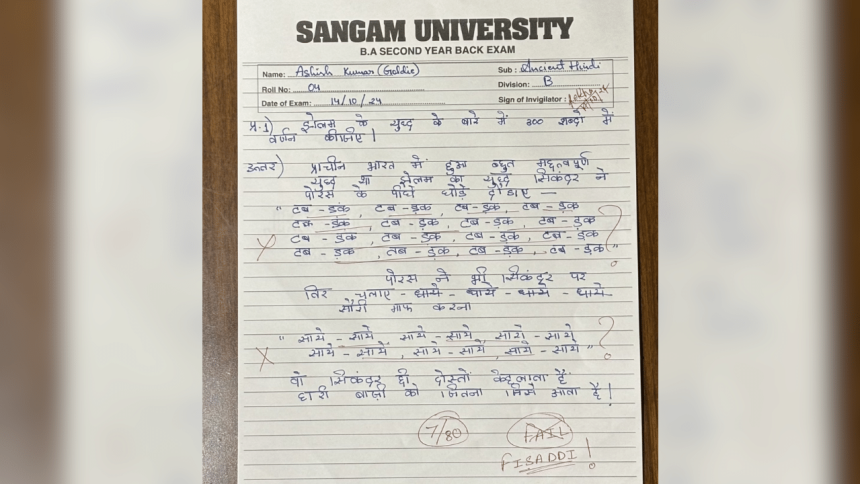 SANGAM UNIVERSITY
B.A SECOND YEAR BACK EXAM
Name: Ashish Kumar (Goldie)
Sub: Ancient Hindi
Roll No: 04
Division: B
Date of Exam: 14/10/24
Sign of Invigilator:
प्र.1) झेलम के युद्ध के बारे में 200 शब्दों में
वर्णन कीजिए।
उत्तर) प्राचीन भारत में हुआ बहुत महत्वपूर्ण
युद्ध था झेलम का युद्ध सिकंदर ने
पोरस के पीछे घोड़े दौड़ाए —
" टब - डक, टब - डक, टब - डक, टब - डक
टब - डक, टब - डक, टब - डक, टब - डक ?
X टब - डक, टब - डक, टब - डक, टब - डक
टब - डक, तब - डक, टब - डक, टब - डक "
पोरस ने भी सिकंदर पर
तिर चलाए - धाये - धाये - धाये - धाये
सॉरी माफ करना
" साये - साये, साये - साये, साये - साये ?
X साये - साये, साये - साये, साये - साये "
वो सिकंदर ही दोस्तों केहलाता है
हारी बाज़ी को जितना जिसे आता है!
7/80
FAIL
FISADDI!